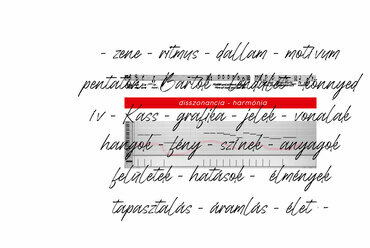 - zene - ritmus - dallam - motívum
pentaton - Bartók - lendület - könnyed
disszonancia - harmónia
ív - Kass - grafika - jelek - vonalak
hangok - fény - színek - anyagok
felületek - hatások - élmények
tapasztalás - áramlás - élet -